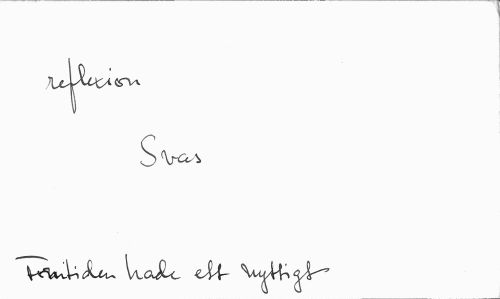 reflexion
Svas
Forntiden hade ett nyttigt